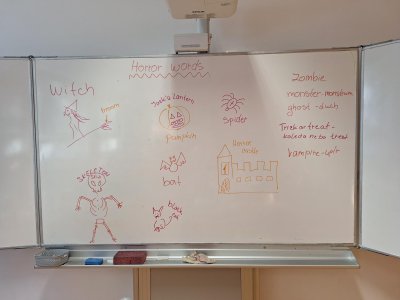 Horror words
Witch
broom
Jack's lantern
pumpkin
spider
Zombie
monster-monstrum
ghost-duch
Trick or treat-
koleda nebo treat
vampire-upír
Horror
castle
bat
SKELETON
black